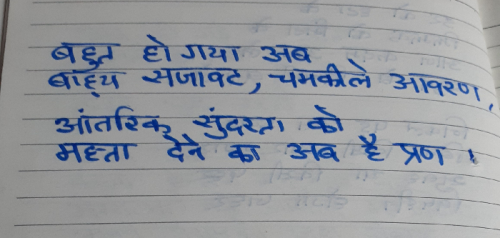 बहुत हो गया अब
बाह्य सजावट, चमकीले आवरण,
आंतरिक सुंदरता को
महत्ता देने का अब है प्रण ।